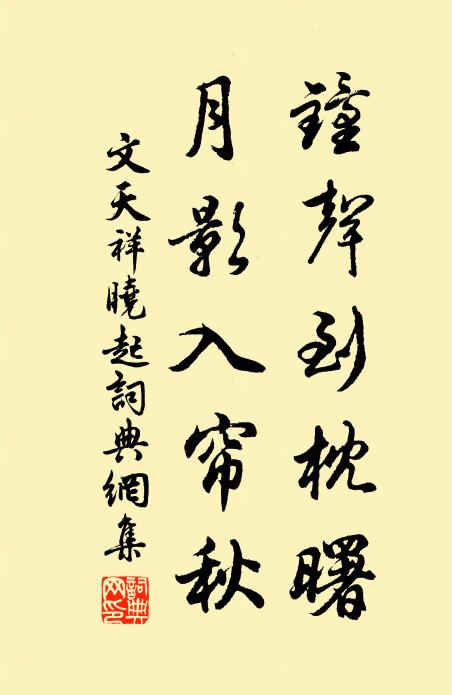 鐘聲到枕曙
月影入帘秋
文天祥曉起詞典網集
詞典網印